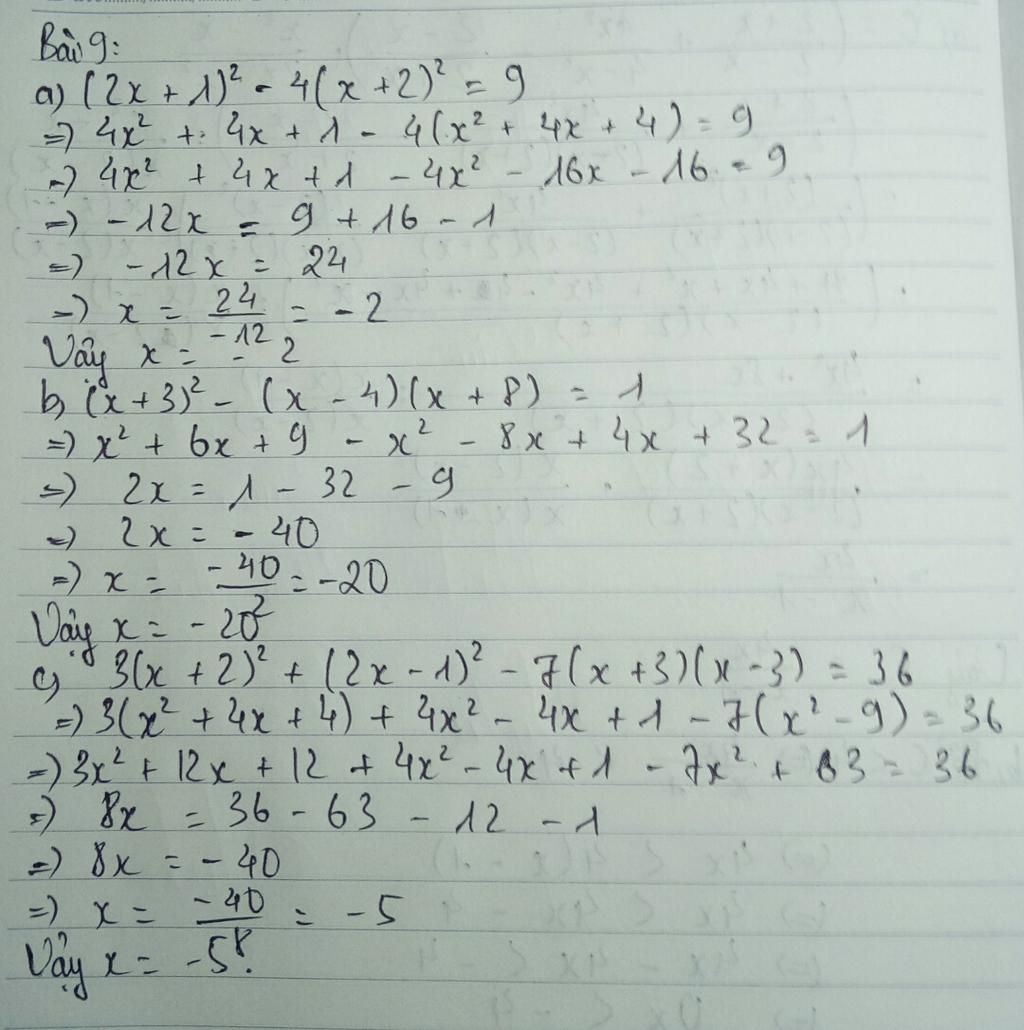 Bài 9:
a) (2x + 1)² - 4(x + 2)² = 9
=) 4x² + 4x + 1 - 4(x² + 4x + 4) = 9
=) 4x² + 4x + 1 - 4x² - 16x - 16 = 9
=) -12x = 9 + 16 - 1
=) -12x = 24
=) x = 24/-12 = -2
Vậy x = -2
b) (x + 3)² - (x - 4)(x + 8) = 1
=) x² + 6x + 9 - x² - 8x + 4x + 32 = 1
=) 2x = 1 - 32 - 9
=) 2x = -40
=) x = -40/2 = -20
Vậy x = -20
c) 3(x + 2)² + (2x - 1)² - 7(x + 3)(x - 3) = 36
=) 3(x² + 4x + 4) + 4x² - 4x + 1 - 7(x² - 9) = 36
=) 3x² + 12x + 12 + 4x² - 4x + 1 - 7x² + 63 = 36
=) 8x = 36 - 63 - 12 - 1
=) 8x = -40
=) x = -40/8 = -5
Vậy x = -5.